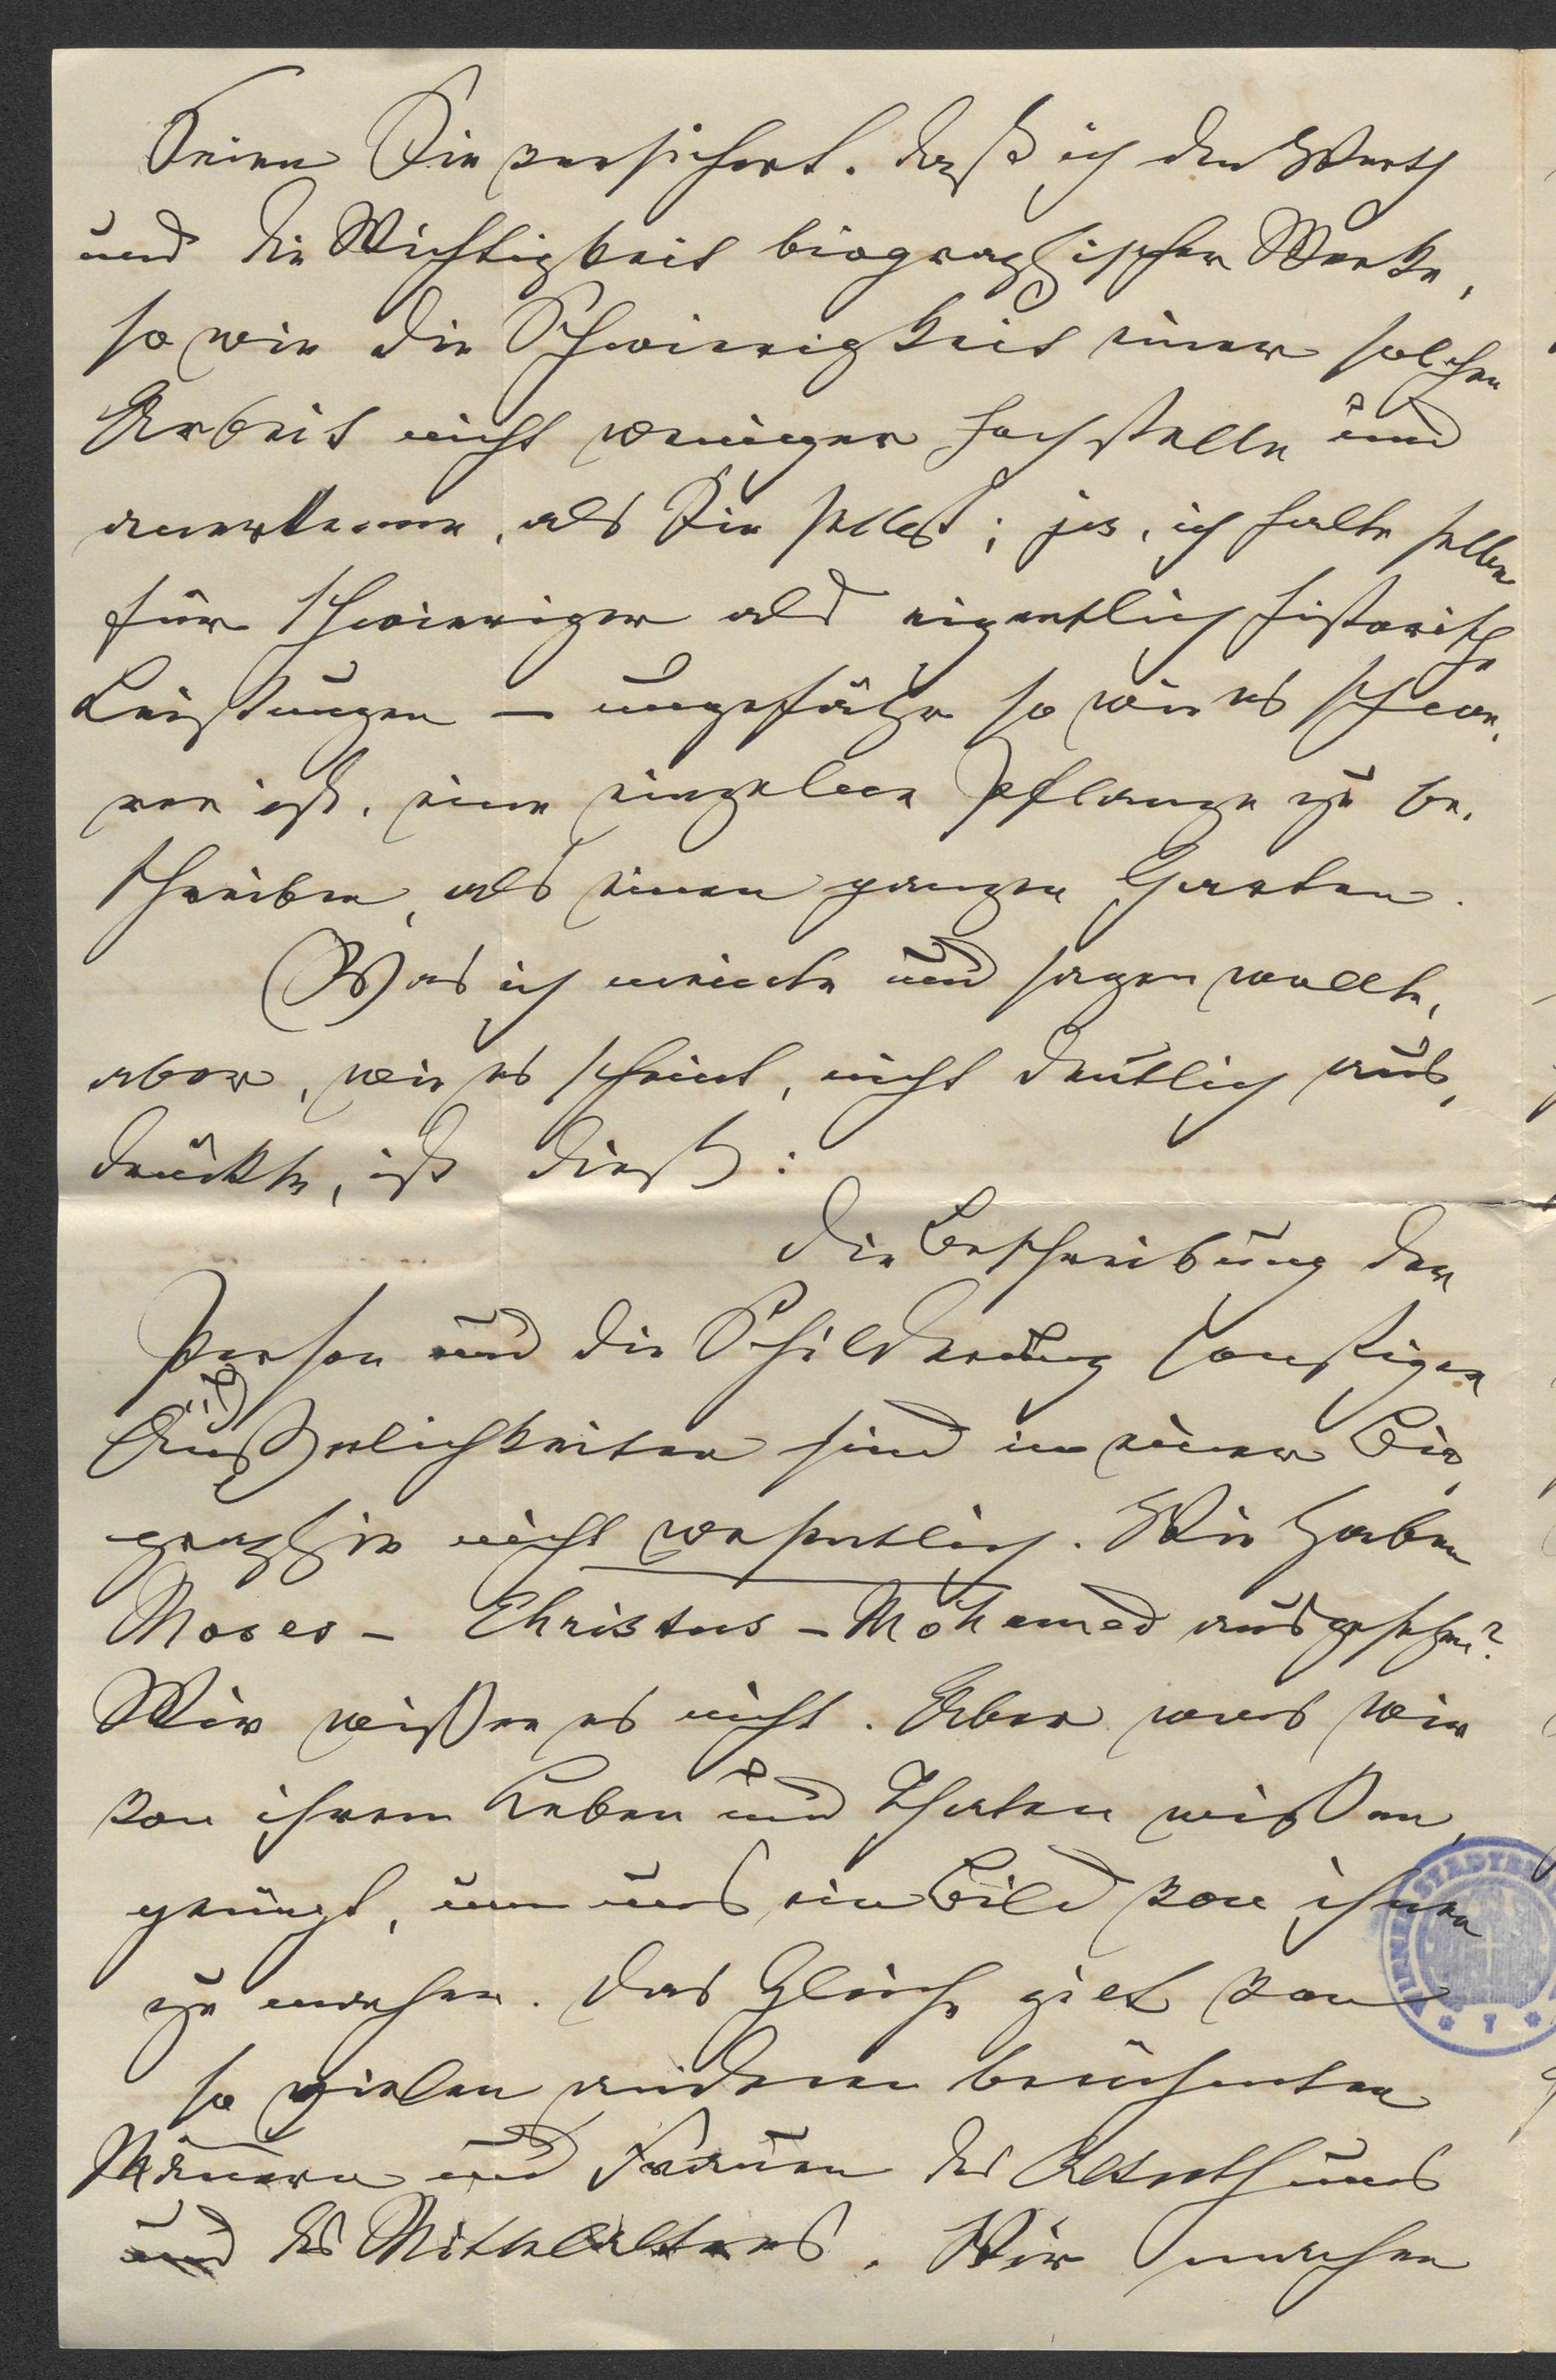 Seien Sie versichert, daß ich den Werth
und die Wichtigkeit biographischer Werke,
so wie die Schwierigkeit einer solchen
Arbeit nicht weniger hochstelle und
anerkenne, als Sie selbst; ja, ich halte selbe
für schwieriger als eigentlich historische
Leistungen – ungefähr so wie es schwe,
rer ist, eine einzelne Pflanze zu be,
schreiben, als einen ganzen Garten.
Was ich meinte und sagen wollte,
aber, wie es scheint, nicht deutlich aus,
drückte, ist dieß:
Die Beschreibung der
Person und die Schilderung sonstiger
Äußerlichkeiten sind in einer Bio,
graphie nicht wesentlich. Wie haben
Moses – Christus – Mohamed ausgesehen?
Wir wißen es nicht. Aber was wir
von ihrem Leben und Thaten wißen,
genügt, um uns ein Bild von ihnen
zu machen. Das Gleiche gilt von
so vielen anderen berühmten
Männern und Frauen des Alterthums
und des Mittelalters. Wir machen
7